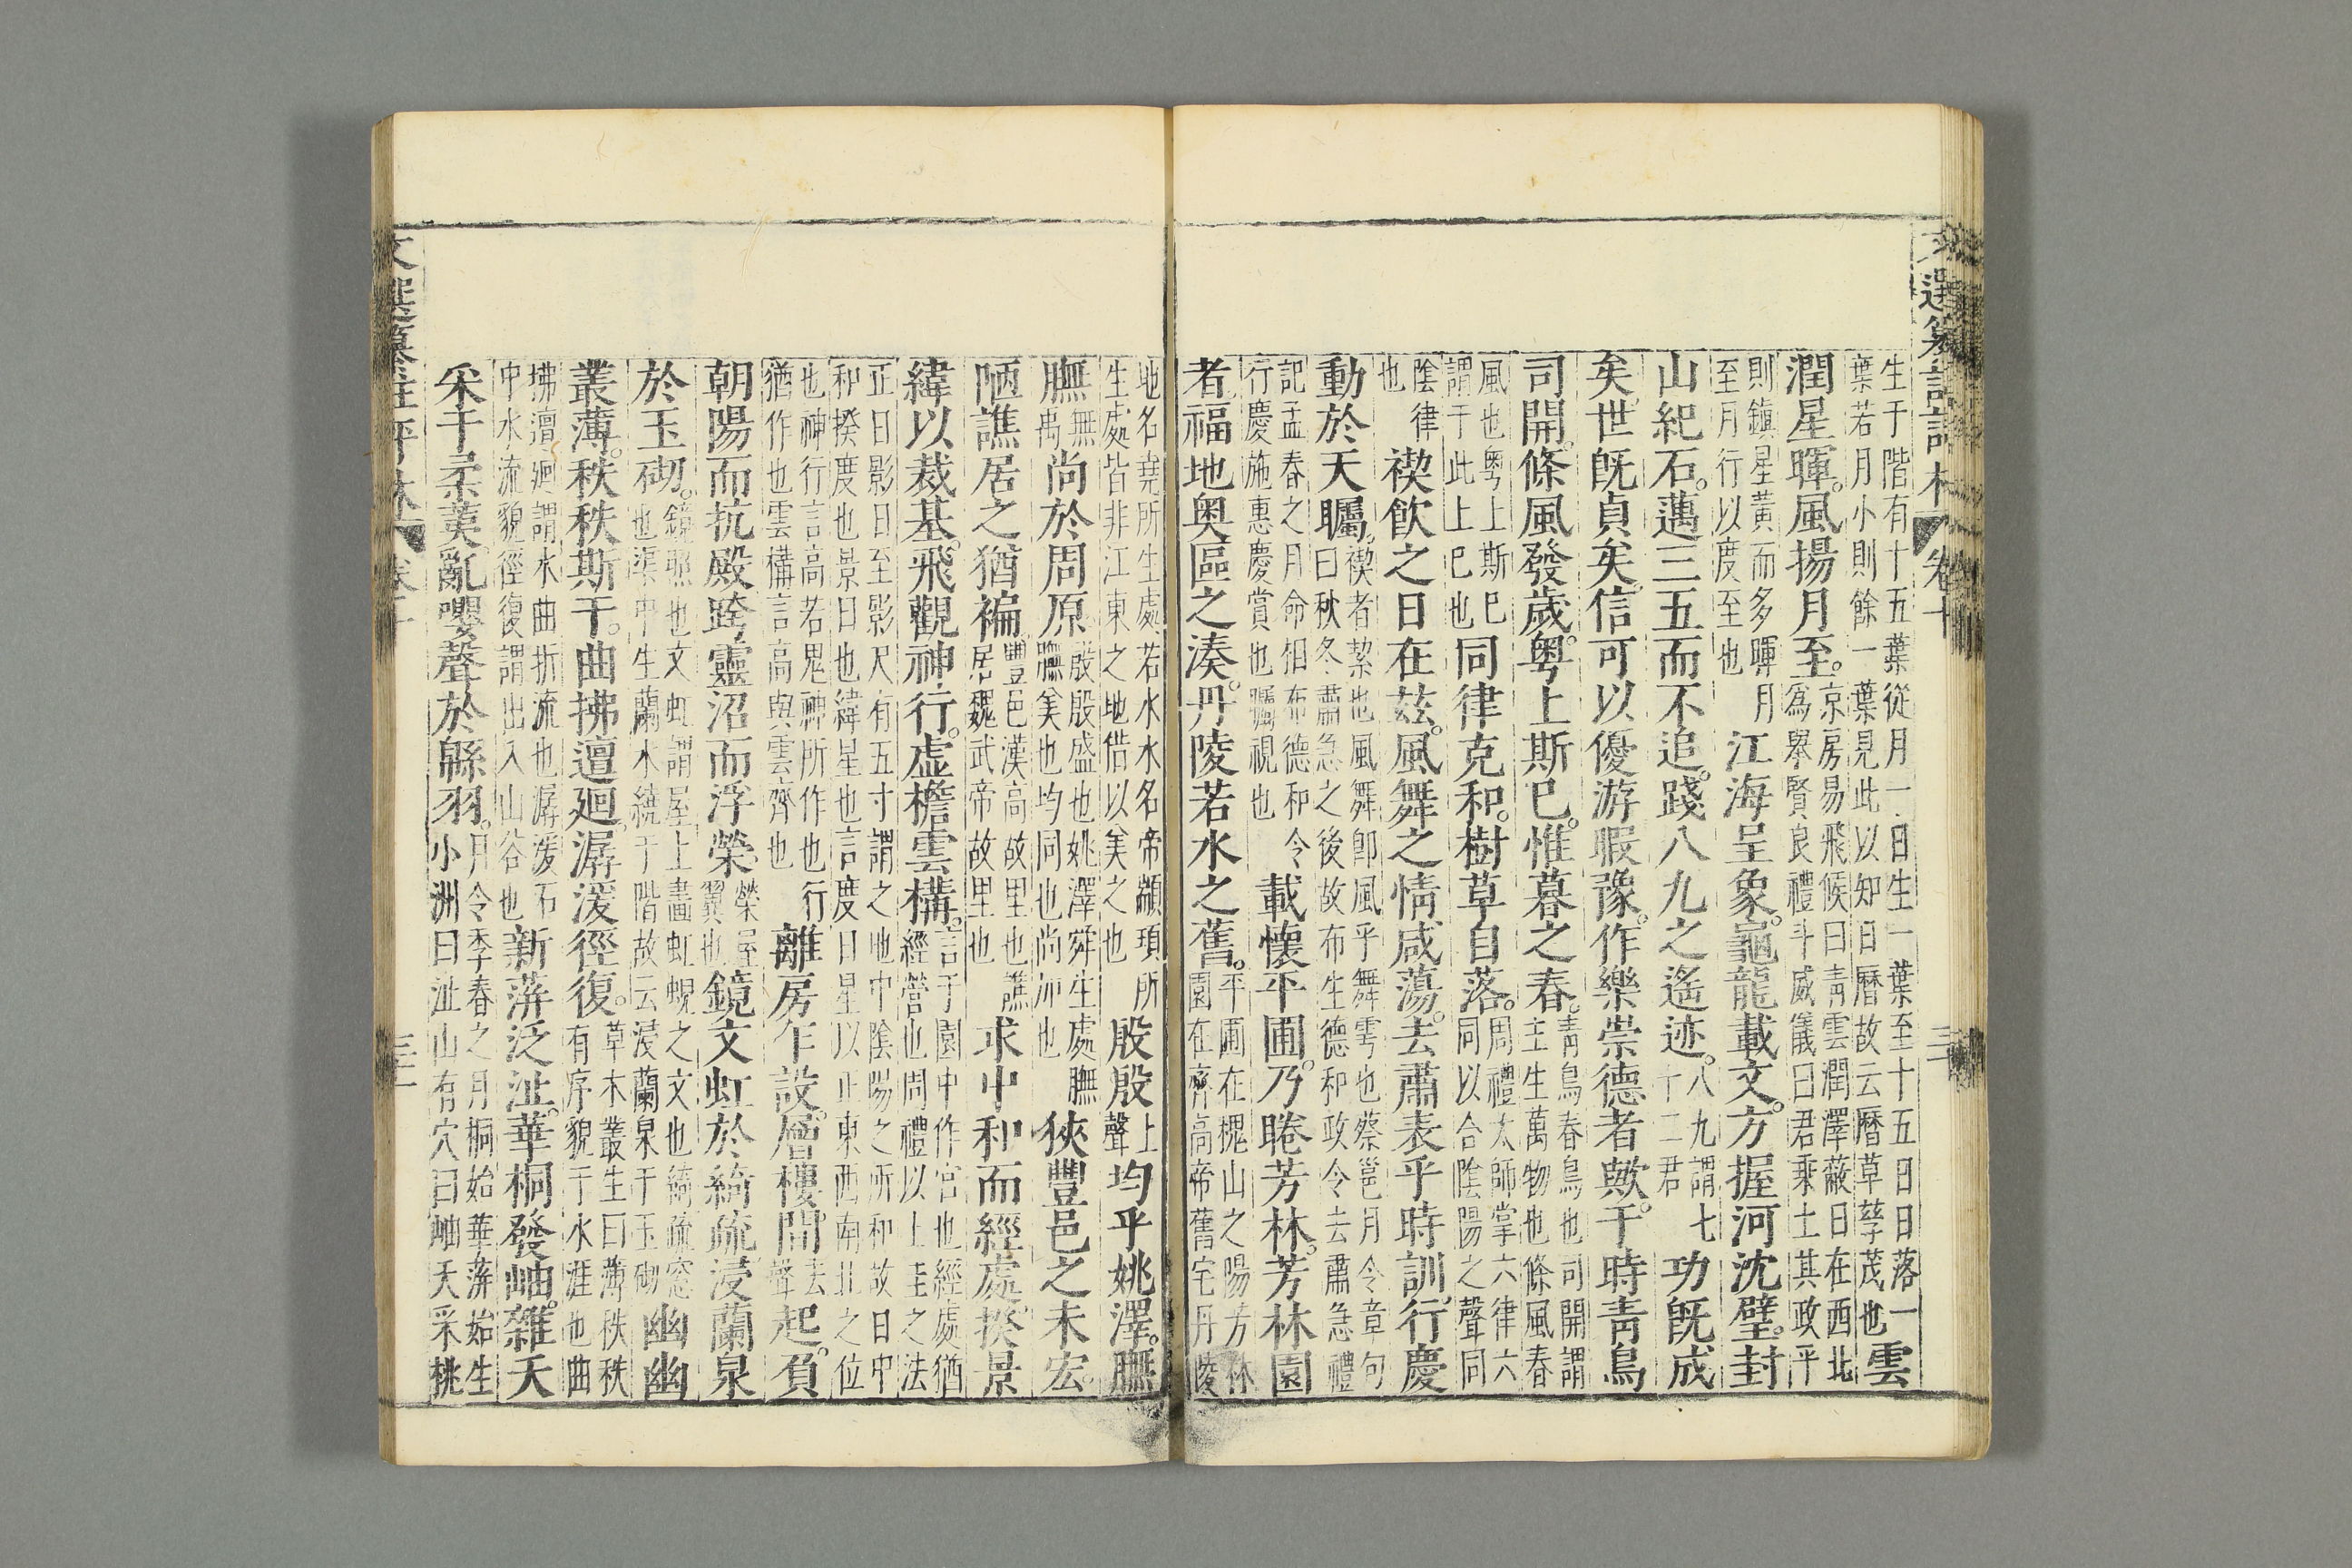 文選纂註評林 卷十 三十
生于階有十五葉從月一日生一葉至十五日日落一葉若月小則餘一葉見此以知日曆故云曆草孳茂也雲
潤星暉。風揚月至。京房易飛候曰青雲潤澤蔽日在西北為舉賢良禮斗威儀曰君乘土其政平
則鎮星黃而多暉月至月行以度至也江海呈象。龜龍載文。方握河沈璧。封
山紀石。邁三五而不追。踐八九之遙迹。八九謂七十二君功既成
矣。世既貞矣。信可以優游暇豫。作樂崇德者歟。于時青鳥
司開。條風發歲。粵上斯巳。惟暮之春。青鳥春鳥也司開謂主生萬物也條風春
風也粵上斯巳謂于此上巳也同律克和。樹草自落。周禮太師掌六律六同以合陰陽之聲同
陰律也禊飲之日在茲。風舞之情咸蕩。去肅表乎時訓。行慶
動於天矚。禊者絜也風舞即風乎舞雩也蔡邕月令章句曰秋冬肅急之後故布生德和政令去肅急禮
記孟春之月命相布德和令行慶施惠慶賞也矚視也載懷平圃。乃睠芳林。芳林園
者福地奧區之湊。丹陵若水之舊。平圃在槐山之陽芳林園在齊高帝舊宅丹陵
地名堯所生處若水水名帝顓頊所生處皆非江東之地偕以美之也殷殷上聲均乎姚澤。膴
膴無禹尚於周原。殷殷盛也姚澤舜生處膴膴美也均同也尚加也狹豐邑之未宏
陋譙居之猶褊。豐邑漢高故里也譙居魏武帝故里也求中和而經處。揆景
緯以裁基。飛觀神行。虛檐雲構。言于園中作宮也經處猶經營也周禮以土圭之法
正日影日至影尺有五寸謂之地中陰陽之所和故曰中和揆度也景日也緯星也言度日星以正東西南北之位
也神行言高若鬼神所作也行猶作也雲構言高與雲齊也離房乍設。層樓間去聲起。負
朝陽而抗殿跨靈沼而浮榮。榮屋翼也鏡文虹於綺疏。浸蘭泉
於玉砌。鏡照也文虹謂屋上畫虹蜺之文也綺疏窓也渠中生蘭水繞于階故云浸蘭泉于玉砌幽幽
叢薄。秩秩斯干。曲拂邅廻。潺湲徑復。草木叢生曰薄秩秩有序貌干水涯也曲
拂邅廻謂水曲折流也潺湲石中水流貌徑復謂出入山谷也新蓱泛沚。華桐發岫。雜夭
采于柔荑。亂嚶聲於緜羽。月令季春之月桐始華蓱始生小洲曰沚山有穴曰岫夭采桃
文選纂註評林 卷十